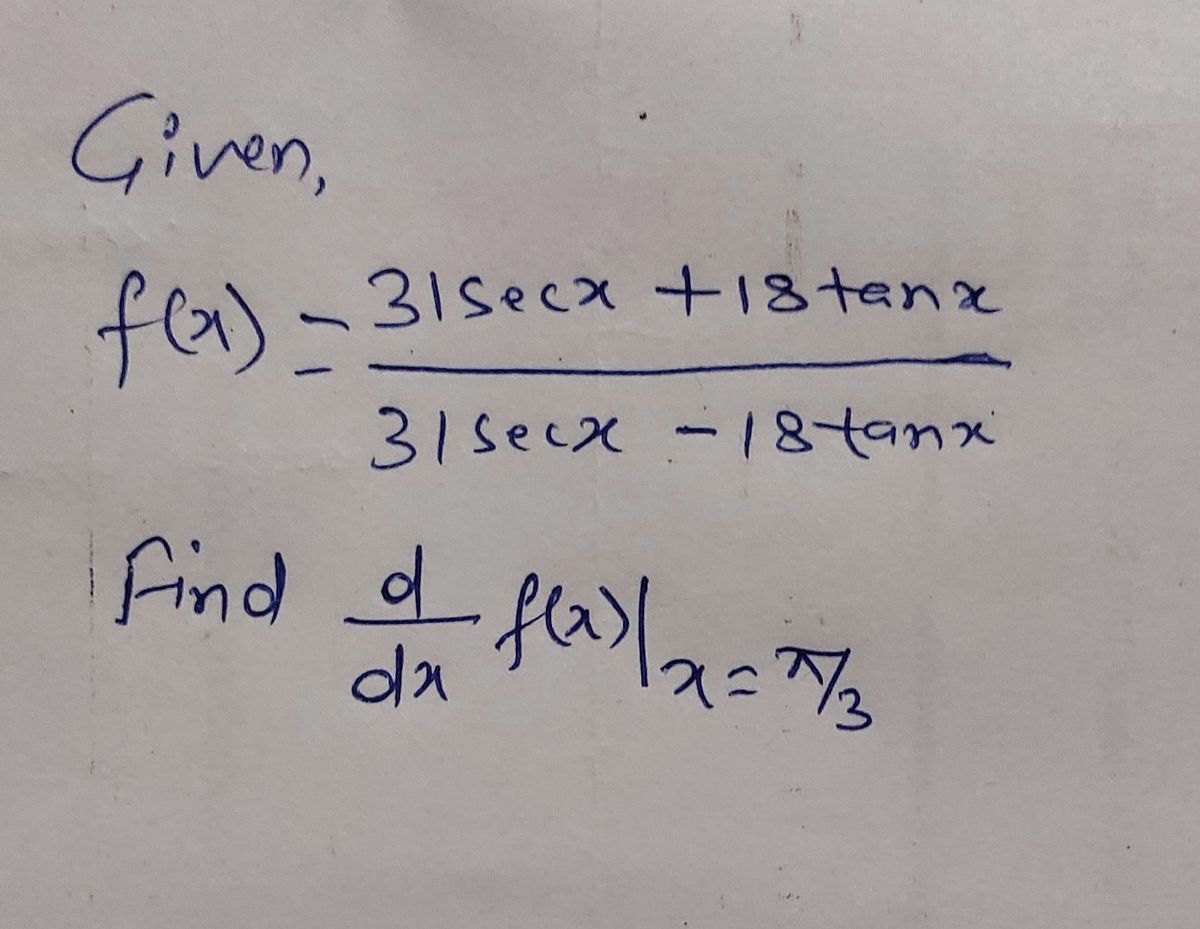 Given,
f(x) = 31 sec x + 18 tan x
31 sec x - 18 tan x
Find d/dx f(x)|x=π/3